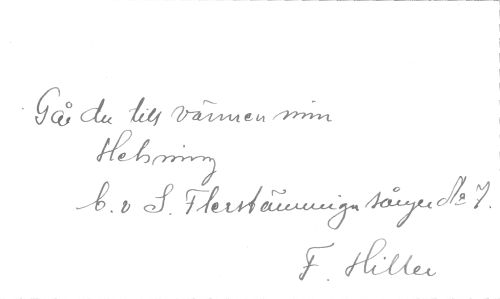 Går du till vännen min
Helsning
b. o S. Flerstämmiga sånger No 7.
F. Hiller